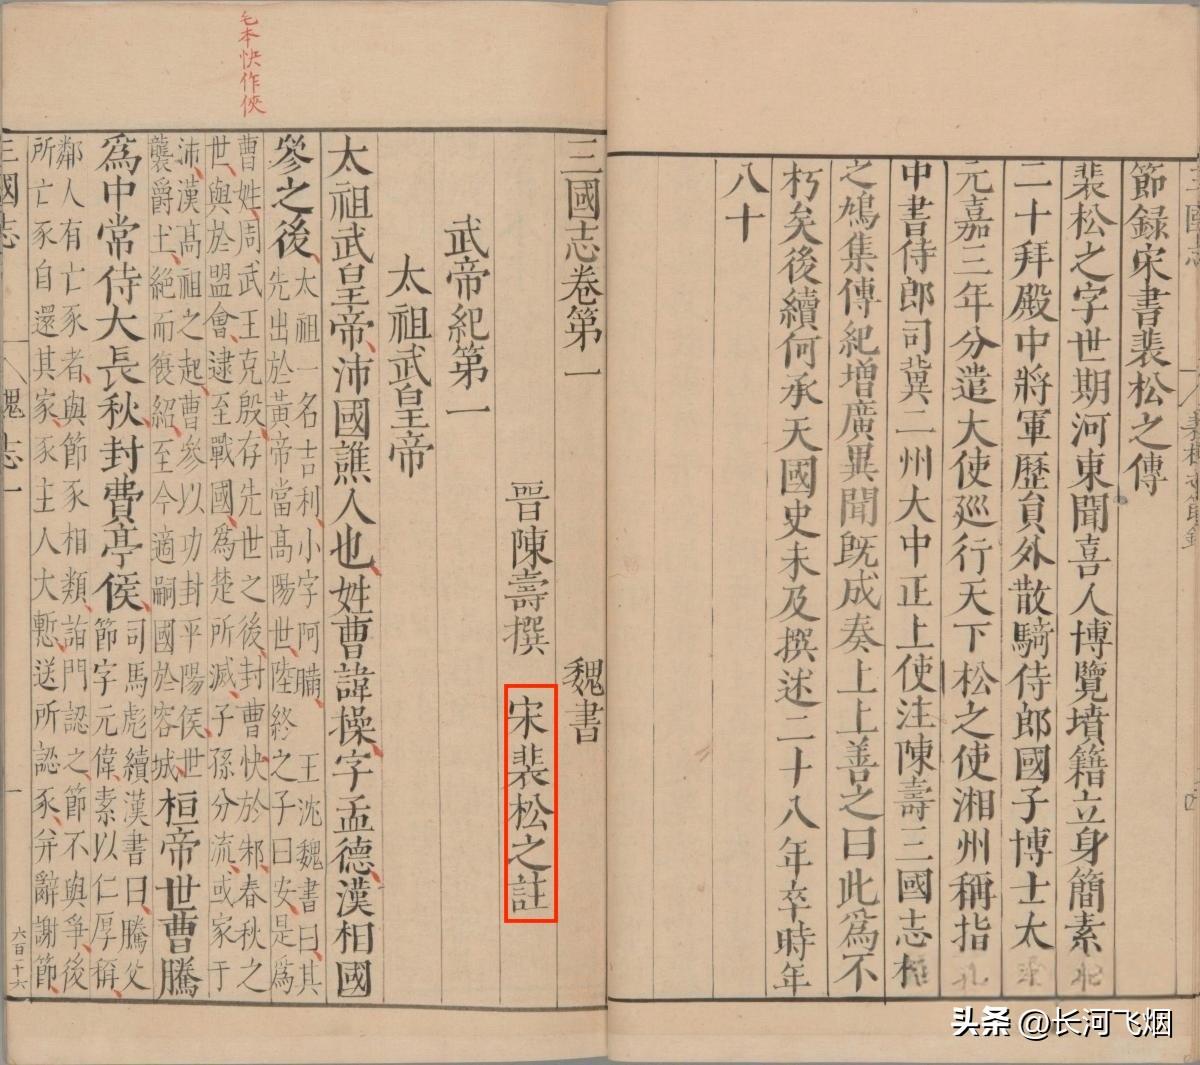 節録宋書裴松之傳
裴松之字世期河東聞喜人博覽墳籍立身簡素
二十拜殿中將軍歷貟外散騎侍郎國子博士太
元嘉三年分遣大使廵行天下松之使湘州稱指
中書侍郎司冀二州大中正上使注陳壽三國志松
之鳩集傳紀增廣異聞既成奏上上善之曰此為不
朽矣後續何承天國史未及撰述二十八年卒時年
八十
毛本怏作俠
三國志卷第一
魏書
晉陳壽撰 宋裴松之註
武帝紀第一
太祖武皇帝
太祖武皇帝沛國譙人也姓曹諱操字孟德漢相國
參之後
太祖一名吉利小字阿瞞 王沈魏書曰其
先出於黃帝當高陽世陸終之子曰安是為
曹姓周武王克殷存先世之後封曹怏於邾春秋之
世與於盟會逮至戰國為楚所滅子孫分流或家于
沛漢高祖之起曹參以功封平陽侯世
襲爵土絕而復紹至今適嗣國於容城
桓帝世曹騰
為中常侍大長秋封費亭侯
司馬彪續漢書曰騰父
節字元偉素以仁厚稱
鄰人有亡豕者與節豕相類詣門認之節不與爭後
所亡豕自還其家豕主人大慙送所認豕并辭謝節
三國志
魏志一
一
六百二十六
头条 @长河飞烟